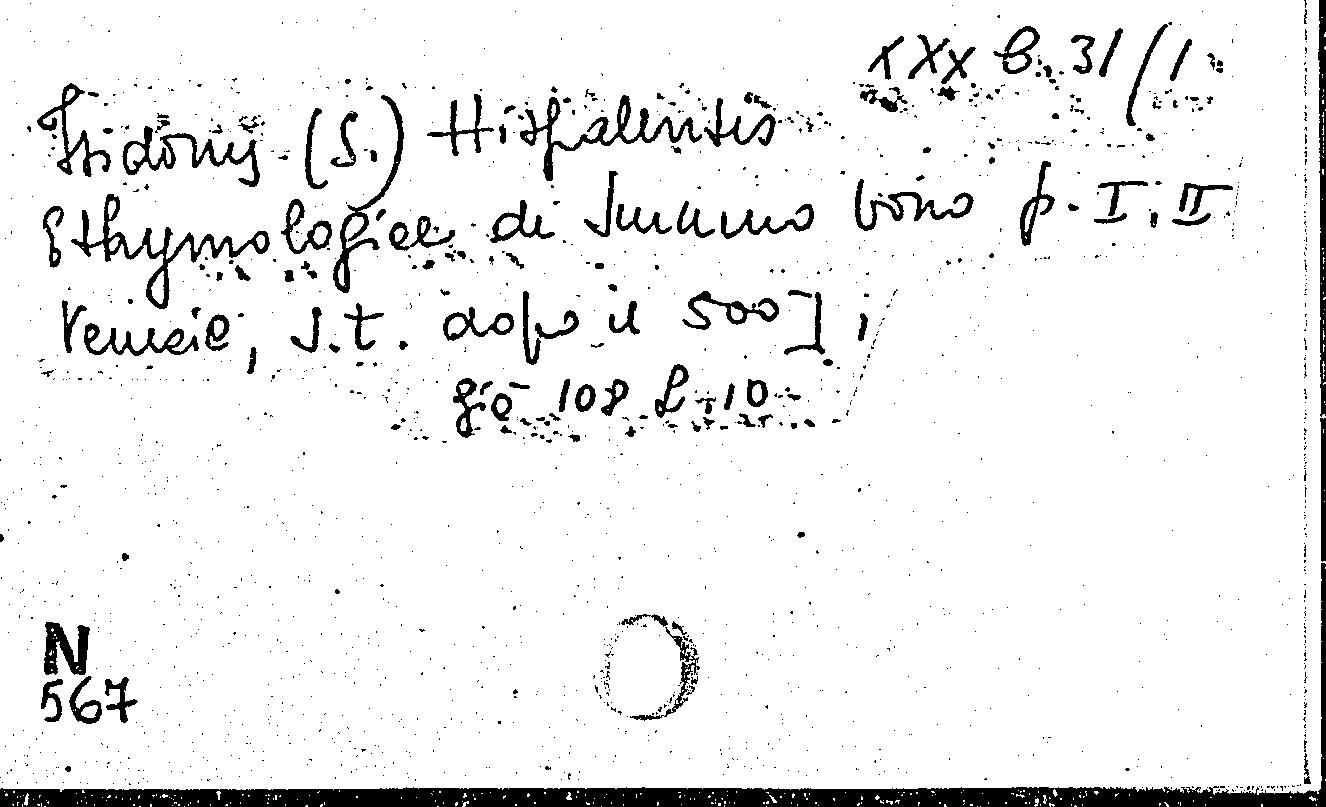 XXX B. 31/1
Isidorus (S.) Hispalensis
Ethymologiae de Summo bono p. I. II
Venezia, s.t. dopo il 500];
già 108 L. 10
N
567